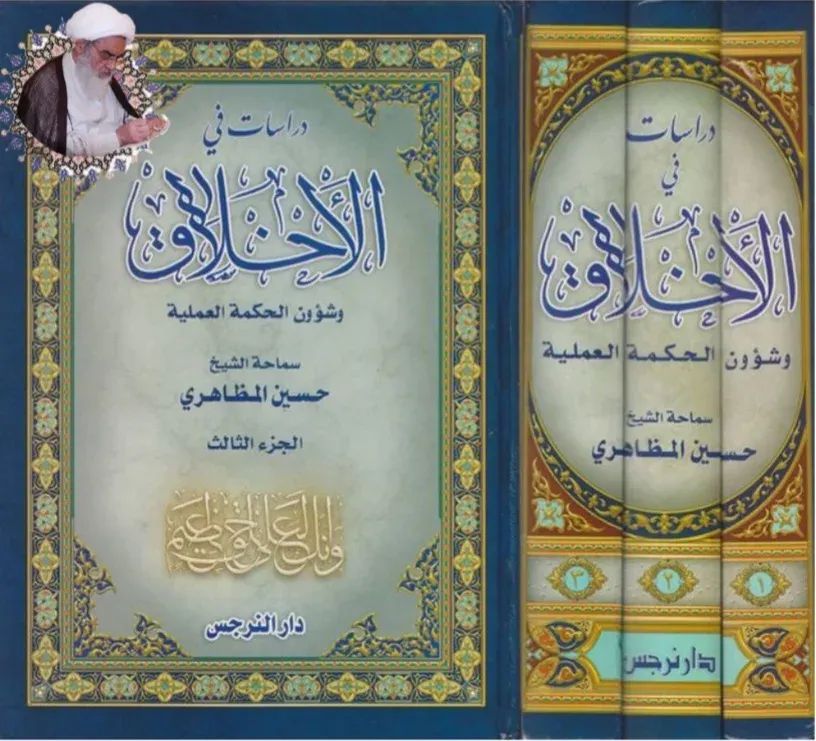 دراسات في
الأخلاق
وشؤون الحكمة العملية
سماحة الشيخ
حسين المظاهري
الجزء الثالث
وإنك لعلى خلق عظيم
دار النرجس
دراسات
في
الأخلاق
وشؤون الحكمة العملية
سماحة الشيخ
حسين المظاهري
١
٢
٣
دار نرجس